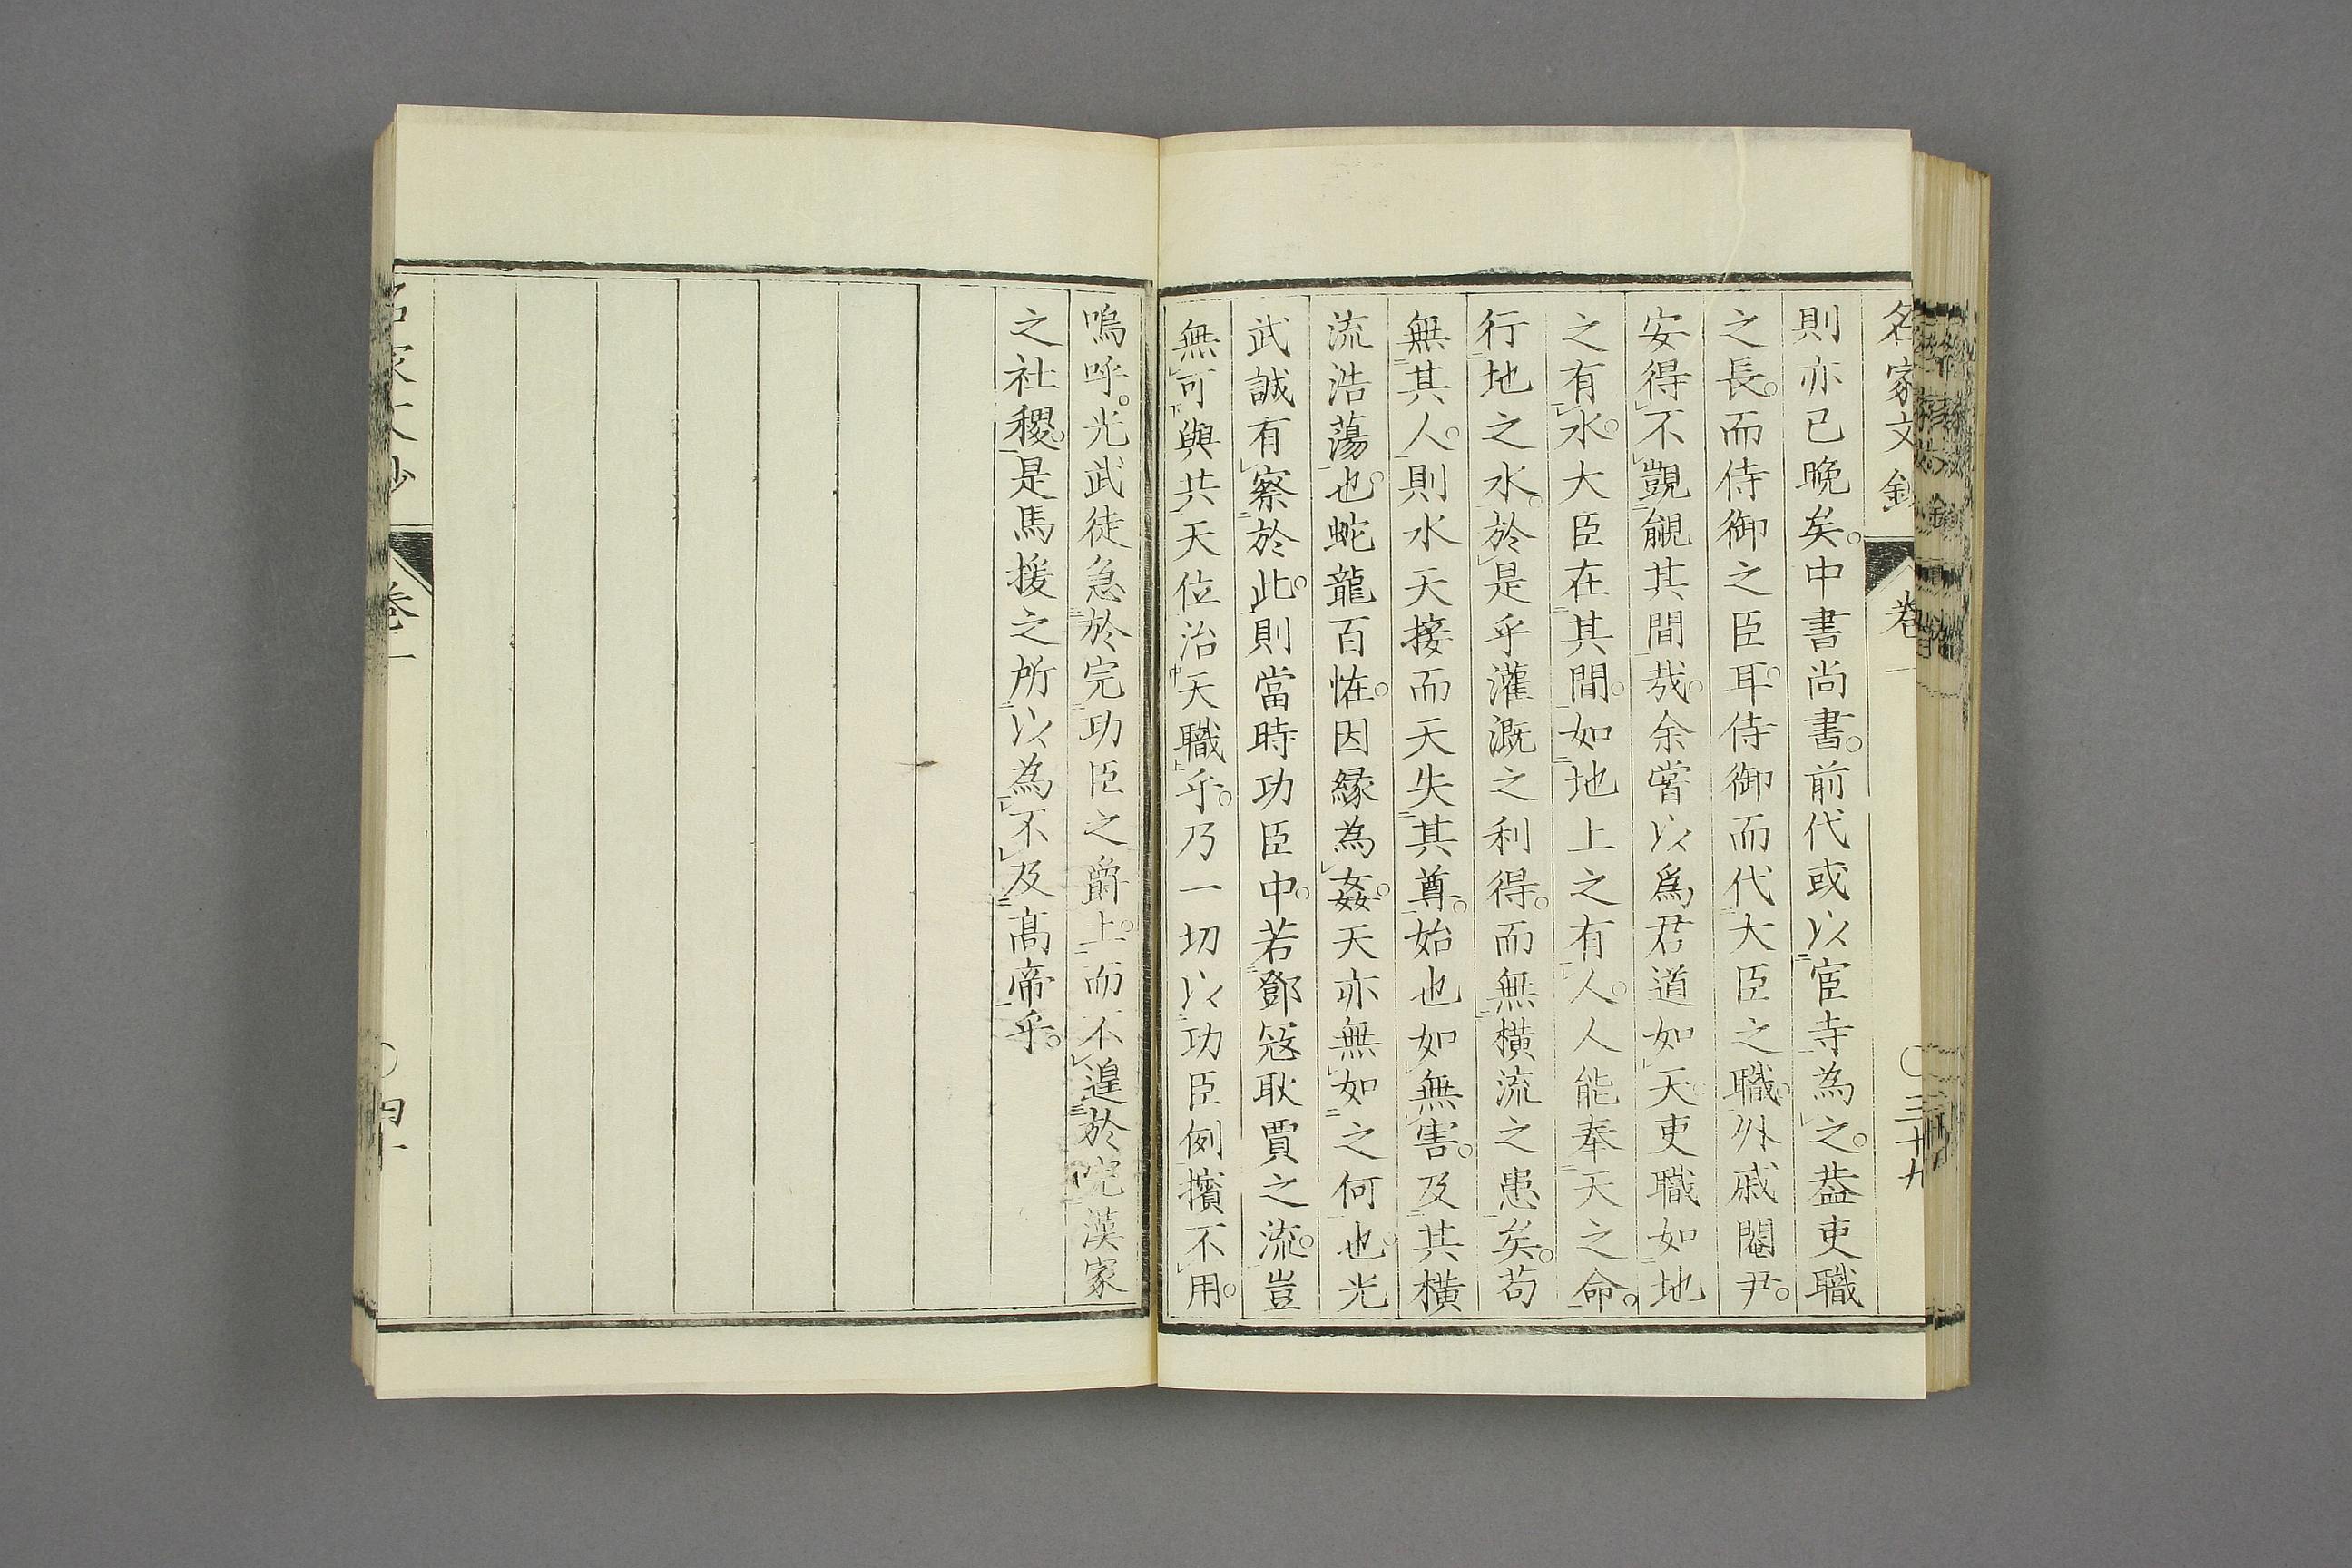 名家文鈔 卷一 〇三十九
則亦已晚矣。中書尚書。前代或以宦寺為之。葢吏職
之長。而侍御之臣耳。侍御而代大臣之職。外戚閹尹。
安得不覬覦其間哉。余嘗以爲君道如天。吏職如地
之有水。大臣在其間。如地上之有人。人能奉天之命。
行地之水。於是乎灌溉之利得。而無橫流之患矣。苟
無其人。則水天接而天失其尊。始也如無害。及其橫
流浩蕩也。蛇龍百恠。因緣為姦。天亦無如之何也。光
武誠有察於此。則當時功臣中。若鄧寇耿賈之流。豈
無可與共天位治天職乎。乃一切以功臣例擯不用。
嗚呼。光武徒急於完功臣之爵土。而不遑於完漢家
之社稷。是馬援之所以為不及高帝乎。
名家文鈔 卷一 〇四十